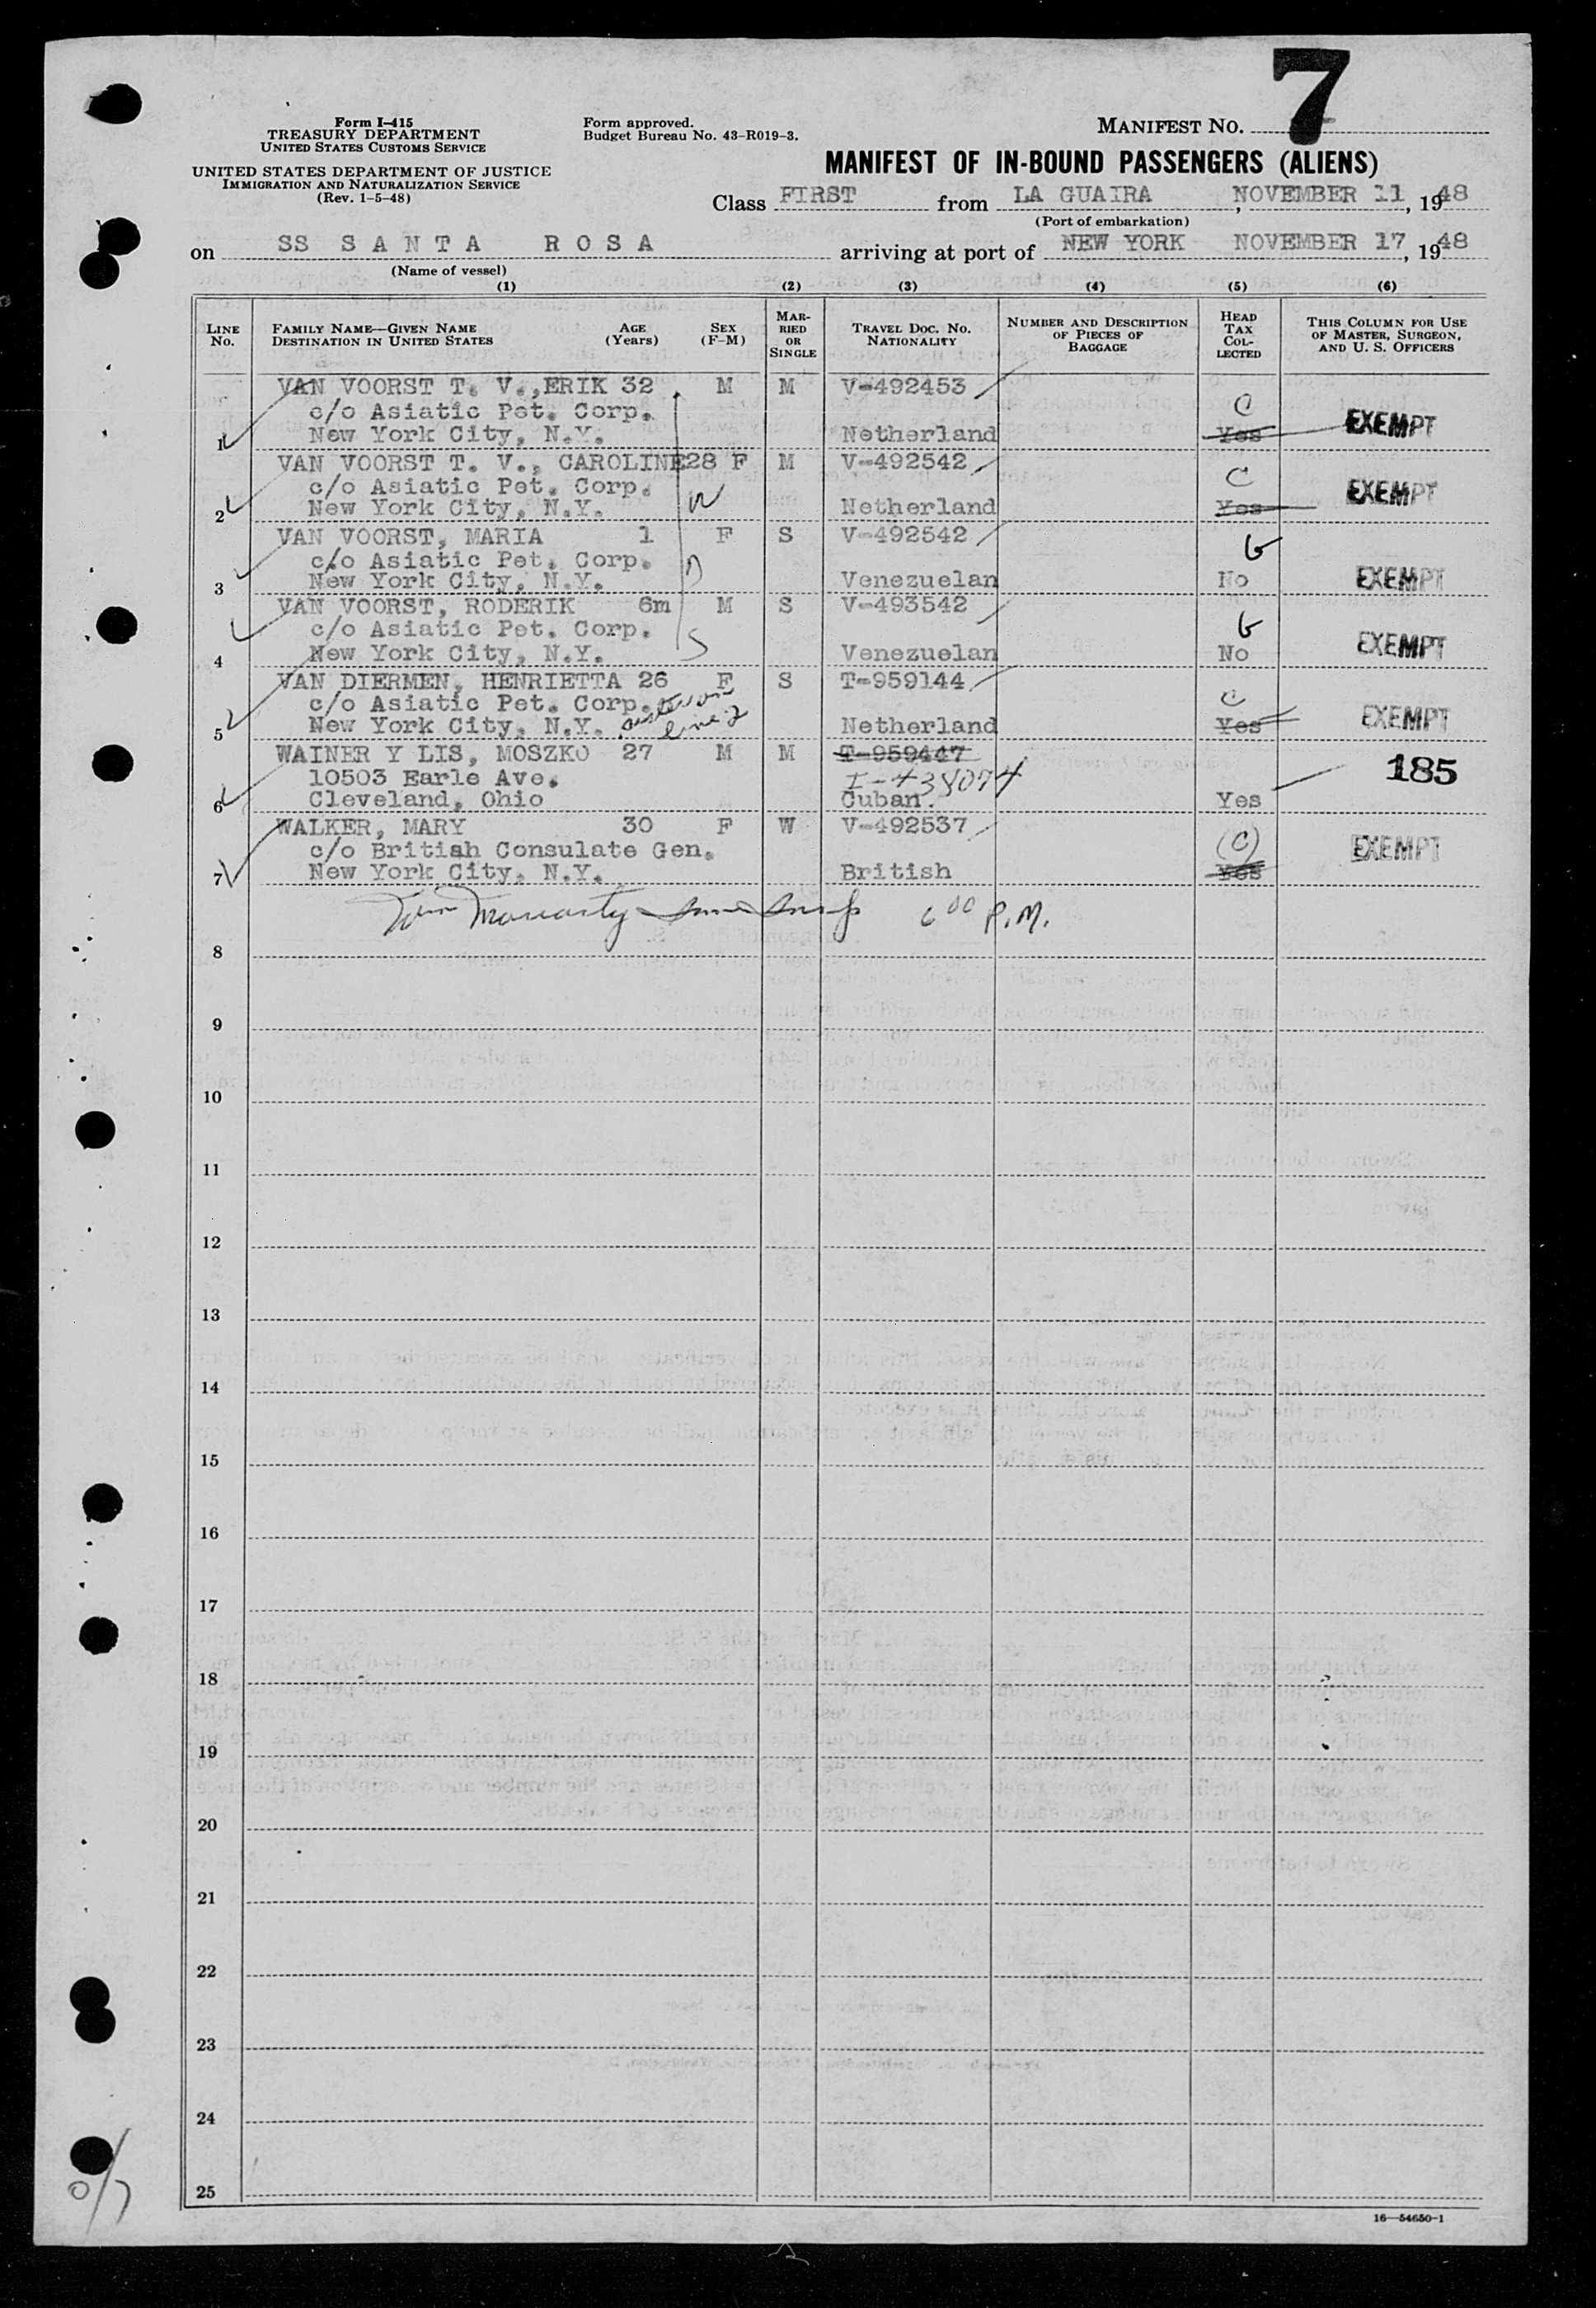 7
Form I-415
TREASURY DEPARTMENT
UNITED STATES CUSTOMS SERVICE
UNITED STATES DEPARTMENT OF JUSTICE
IMMIGRATION AND NATURALIZATION SERVICE
(Rev. 1-5-48)
Form approved.
Budget Bureau No. 43-R019-3.
MANIFEST NO.
MANIFEST OF IN-BOUND PASSENGERS (ALIENS)
Class FIRST from LA GUAIRA, NOVEMBER 11, 1948
(Port of embarkation)
on SS SANTA ROSA arriving at port of NEW YORK NOVEMBER 17, 1948
(Name of vessel)
(1) (2) (3) (4) (5) (6)
LINE NO. FAMILY NAME—GIVEN NAME DESTINATION IN UNITED STATES AGE (Years) SEX (F-M) MARRIED OR SINGLE TRAVEL DOC. NO. NATIONALITY NUMBER AND DESCRIPTION OF PIECES OF BAGGAGE HEAD TAX COLLECTED THIS COLUMN FOR USE OF MASTER, SURGEON, AND U. S. OFFICERS
VAN VOORST T. V.,ERIK 32 M M V-492453
c/o Asiatic Pet. Corp. C
1 New York City, N.Y. Netherland Yes EXEMPT
VAN VOORST T. V., CAROLINE28 F M V-492542
c/o Asiatic Pet. Corp. W C
2 New York City, N.Y. Netherland Yes EXEMPT
VAN VOORST, MARIA 1 F S V-492542
c/o Asiatic Pet. Corp. D G
3 New York City, N.Y. Venezuelan No EXEMPT
VAN VOORST, RODERIK 6m M S V-493542
c/o Asiatic Pet. Corp. S G
4 New York City, N.Y. Venezuelan No EXEMPT
VAN DIERMEN, HENRIETTA 26 F S T-959144
c/o Asiatic Pet. Corp. C
5 New York City, N.Y. line 2 Netherland Yes EXEMPT
WAINER Y LIS, MOSZKO 27 M M T-959447
10503 Earle Ave. I-438074 185
6 Cleveland, Ohio Cuban. Yes
WALKER, MARY 30 F W V-492537
c/o British Consulate Gen. (C) EXEMPT
7 New York City, N.Y. British Yes
Moriarty 6 00 P.M.
8
9
10
11
12
13
14
15
16
17
18
19
20
21
22
23
24
25
16—54650-1
0/7